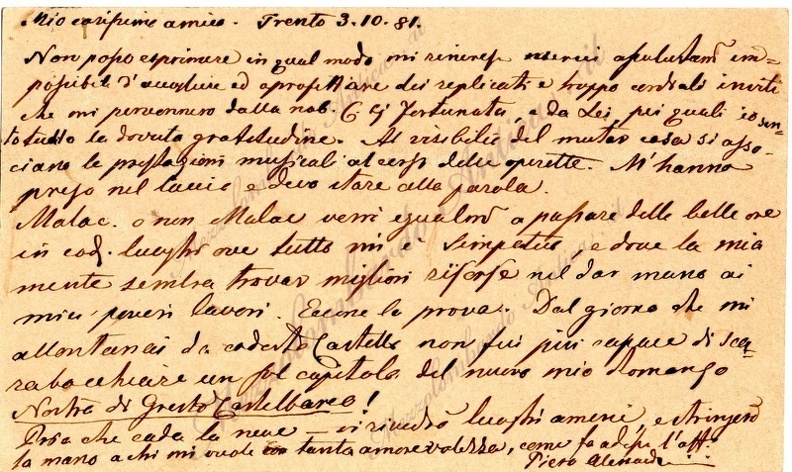 Mio carissimo amico. Trento 3.10.81.
Non posso esprimere in qual modo mi rincresce essermi assolutam im=
possibile d'accogliere ed approfittare dei replicati e troppo cordiali inviti
che mi pervennero dalla nob. C. Fortunata e da Lei, pei quali io sen=
to tutta la dovuta gratitudine. Al visibilio del mutar casa si asso-
ciano le prestazioni musicali al corso delle operette. M'hanno
preso nel laccio e devo stare alla parola.
Malac. o non Malac verrei egualm a passare delle belle ore
in cod. luoghi ove tutto mi è simpatico, e dove la mia
mente sembra trovar migliori risorse nel dar mano ai
miei poveri lavori. Eccone la prova. Dal giorno che mi
allontanai da codesto Castello non fui più capace di sca=
rabocchiare un sol capitolo del nuovo mio Romanzo
Nostra di Gresta Castelbarco!
Pria che cada la neve — rivedrò luoghi ameni, e stringerò
la mano a chi mi vuole tanta amorevolezza, come fa adesso l'aff.
Piero